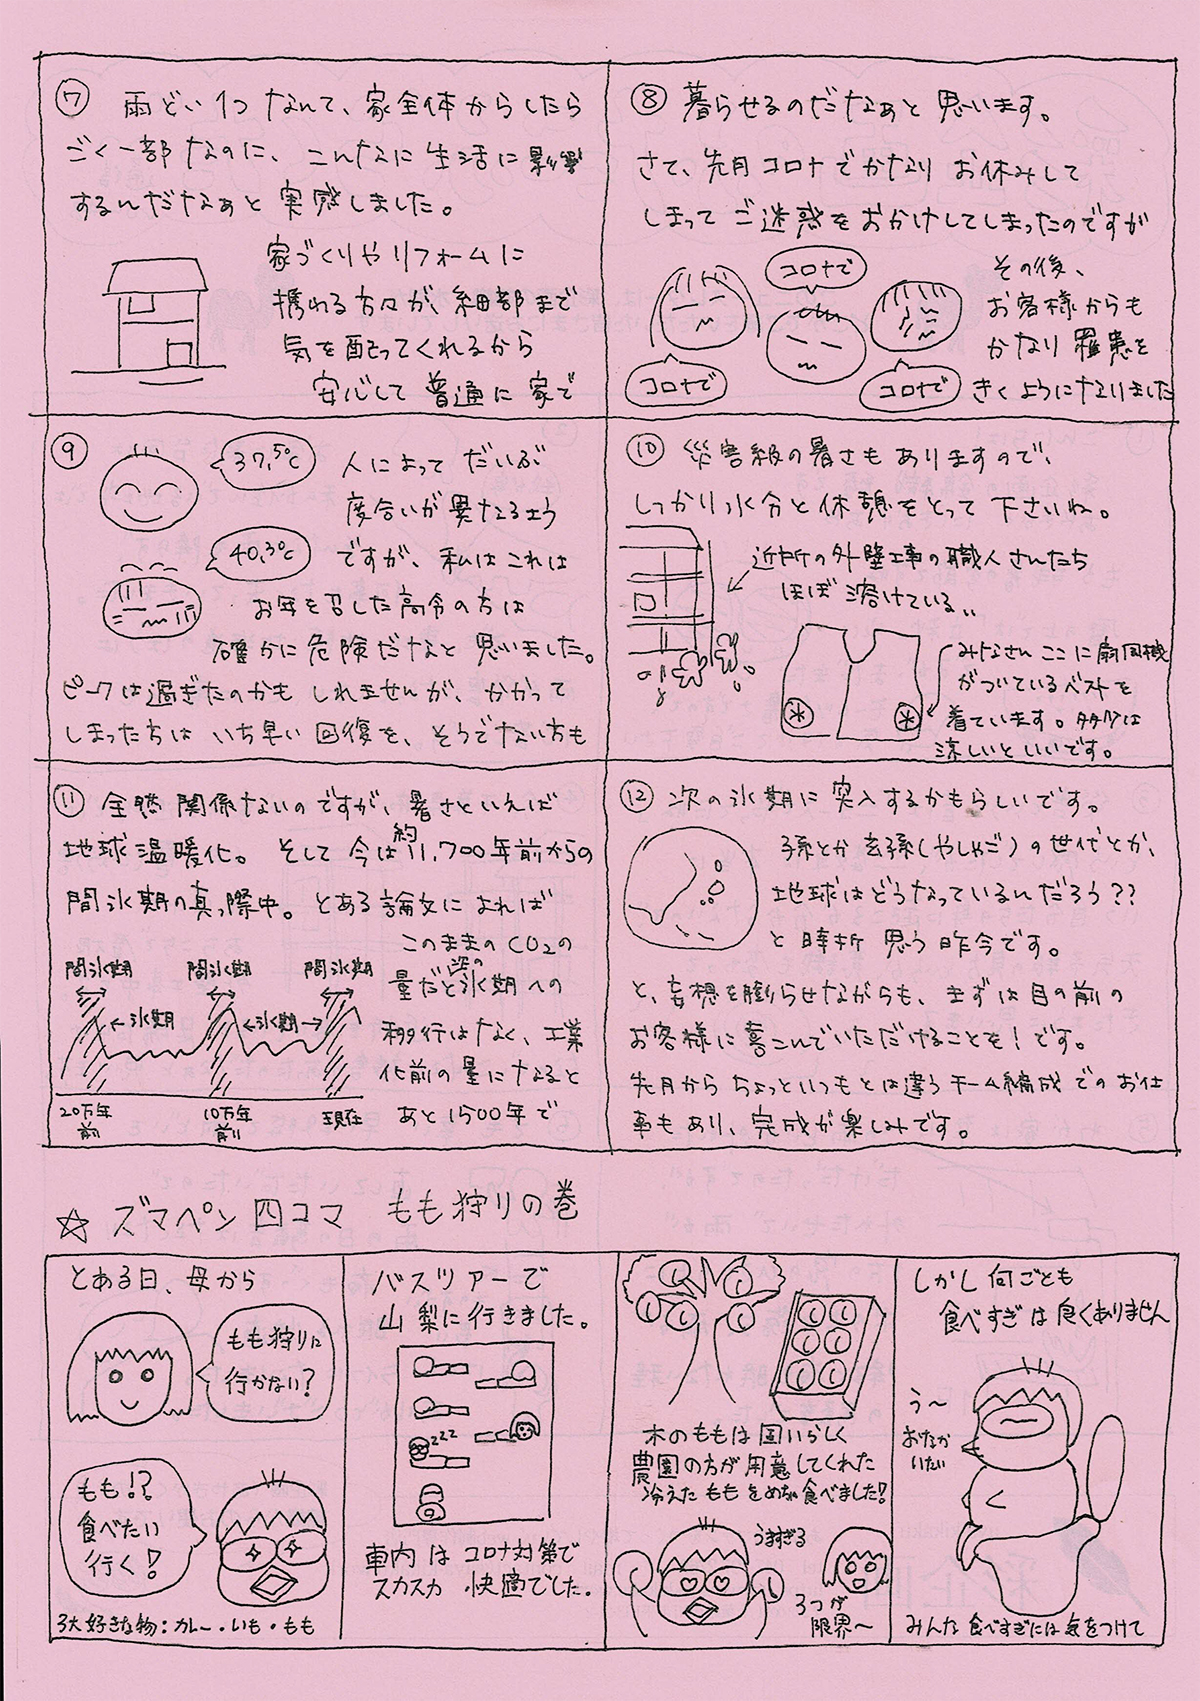 ⑦ 雨どい1つなんて、家全体からしたら
ごく一部なのに、こんなに生活に影響
するんだなぁと実感しました。
家づくりやリフォームに
携わる方々が、細部まで
気を配ってくれるから
安心して普通に家で
⑧ 暮らせるのだなぁと思います。
さて、先月コロナでかなりお休みして
しまってご迷惑をおかけしてしまったのですが
コロナで
コロナで
コロナで
その後、
お客様からも
かなり罹患を
きくようになりました
⑨
37,5℃
40,3℃
人によってだいぶ
度合いが異なるよう
ですが、私はこれは
お年を召した高令の方は
確かに危険だなと思いました。
ピークは過ぎたのかもしれませんが、かかって
しまった方はいち早い回復を、そうでない方も
⑩ 災害級の暑さもありますので、
しっかり水分と休憩をとって下さいね。
近所の外壁工事の職人さんたち
ほぼ溶けている、、
みなさんここに扇風機
がついているベストを
着ています。多少は
涼しいといいです。
⑪ 全然関係ないのですが、暑さといえば
地球温暖化。そして今は約11,700年前からの
間氷期の真っ際中。とある論文によれば
このままのCO2の
量だと次の氷期への
移行はなく、工業
化前の量になると
あと1500年で
間氷期
間氷期
間氷期
←氷期
←氷期→
20万年前
10万年前
現在
⑫ 次の氷期に突入するかもらしいです。
孫とか玄孫(やしゃご)の世代とか、
地球はどうなっているんだろう??
と時折思う昨今です。
と、妄想を膨らせながらも、まずは目の前の
お客様に喜こんでいただけることを!です。
先月からちょっといつもとは違うチーム編成でのお仕
事もあり、完成が楽しみです。
☆ズマペン四コマ もも狩りの巻
とある日、母から
もも狩りに
行かない?
もも!?
食べたい
行く!
3大好きな物:カレー・いも・もも
バスツアーで
山梨に行きました。
zzz
車内はコロナ対策で
スカスカ 快適でした。
木のももは固いらしく
農園の方が用意してくれた
冷えたももをめちゃ食べました!
うますぎる
3つが
限界〜
しかし何ごとも
食べすぎは良くありません
う〜
おなか
いたい
みんな食べすぎには気をつけて